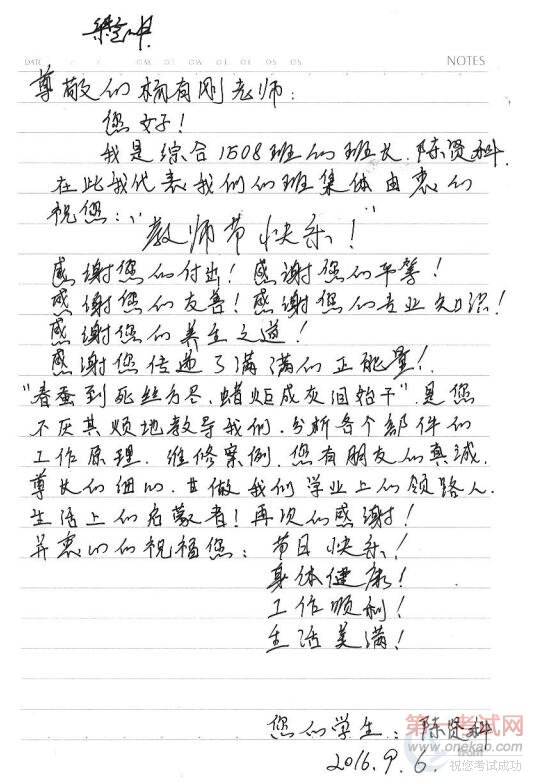 DATE
NOTES
尊敬的杨有刚老师：
您好！
我是综合1508班的班长，陈贤科，
在此我代表我们的班集体由衷的
祝您：“
教师节快乐！”
感谢您的付出！感谢您的平等！
感谢您的友善！感谢您的专业知识！
感谢您的养生之道！
感谢您传递了满满的正能量！
“春蚕到死丝方尽，蜡炬成灰泪始干”是您
不厌其烦地教导我们，分析各个部件的
工作原理，维修案例，您有朋友的真诚，
尊长的细心，甘做我们学业上的领路人，
生活上的启蒙者！再次的感谢！
并衷心的祝福您：节日快乐！
身体健康！
工作顺利！
生活美满！
您的学生：陈贤科
2016.9.6.
第一考试网
www.onekao.com
祝您考试成功